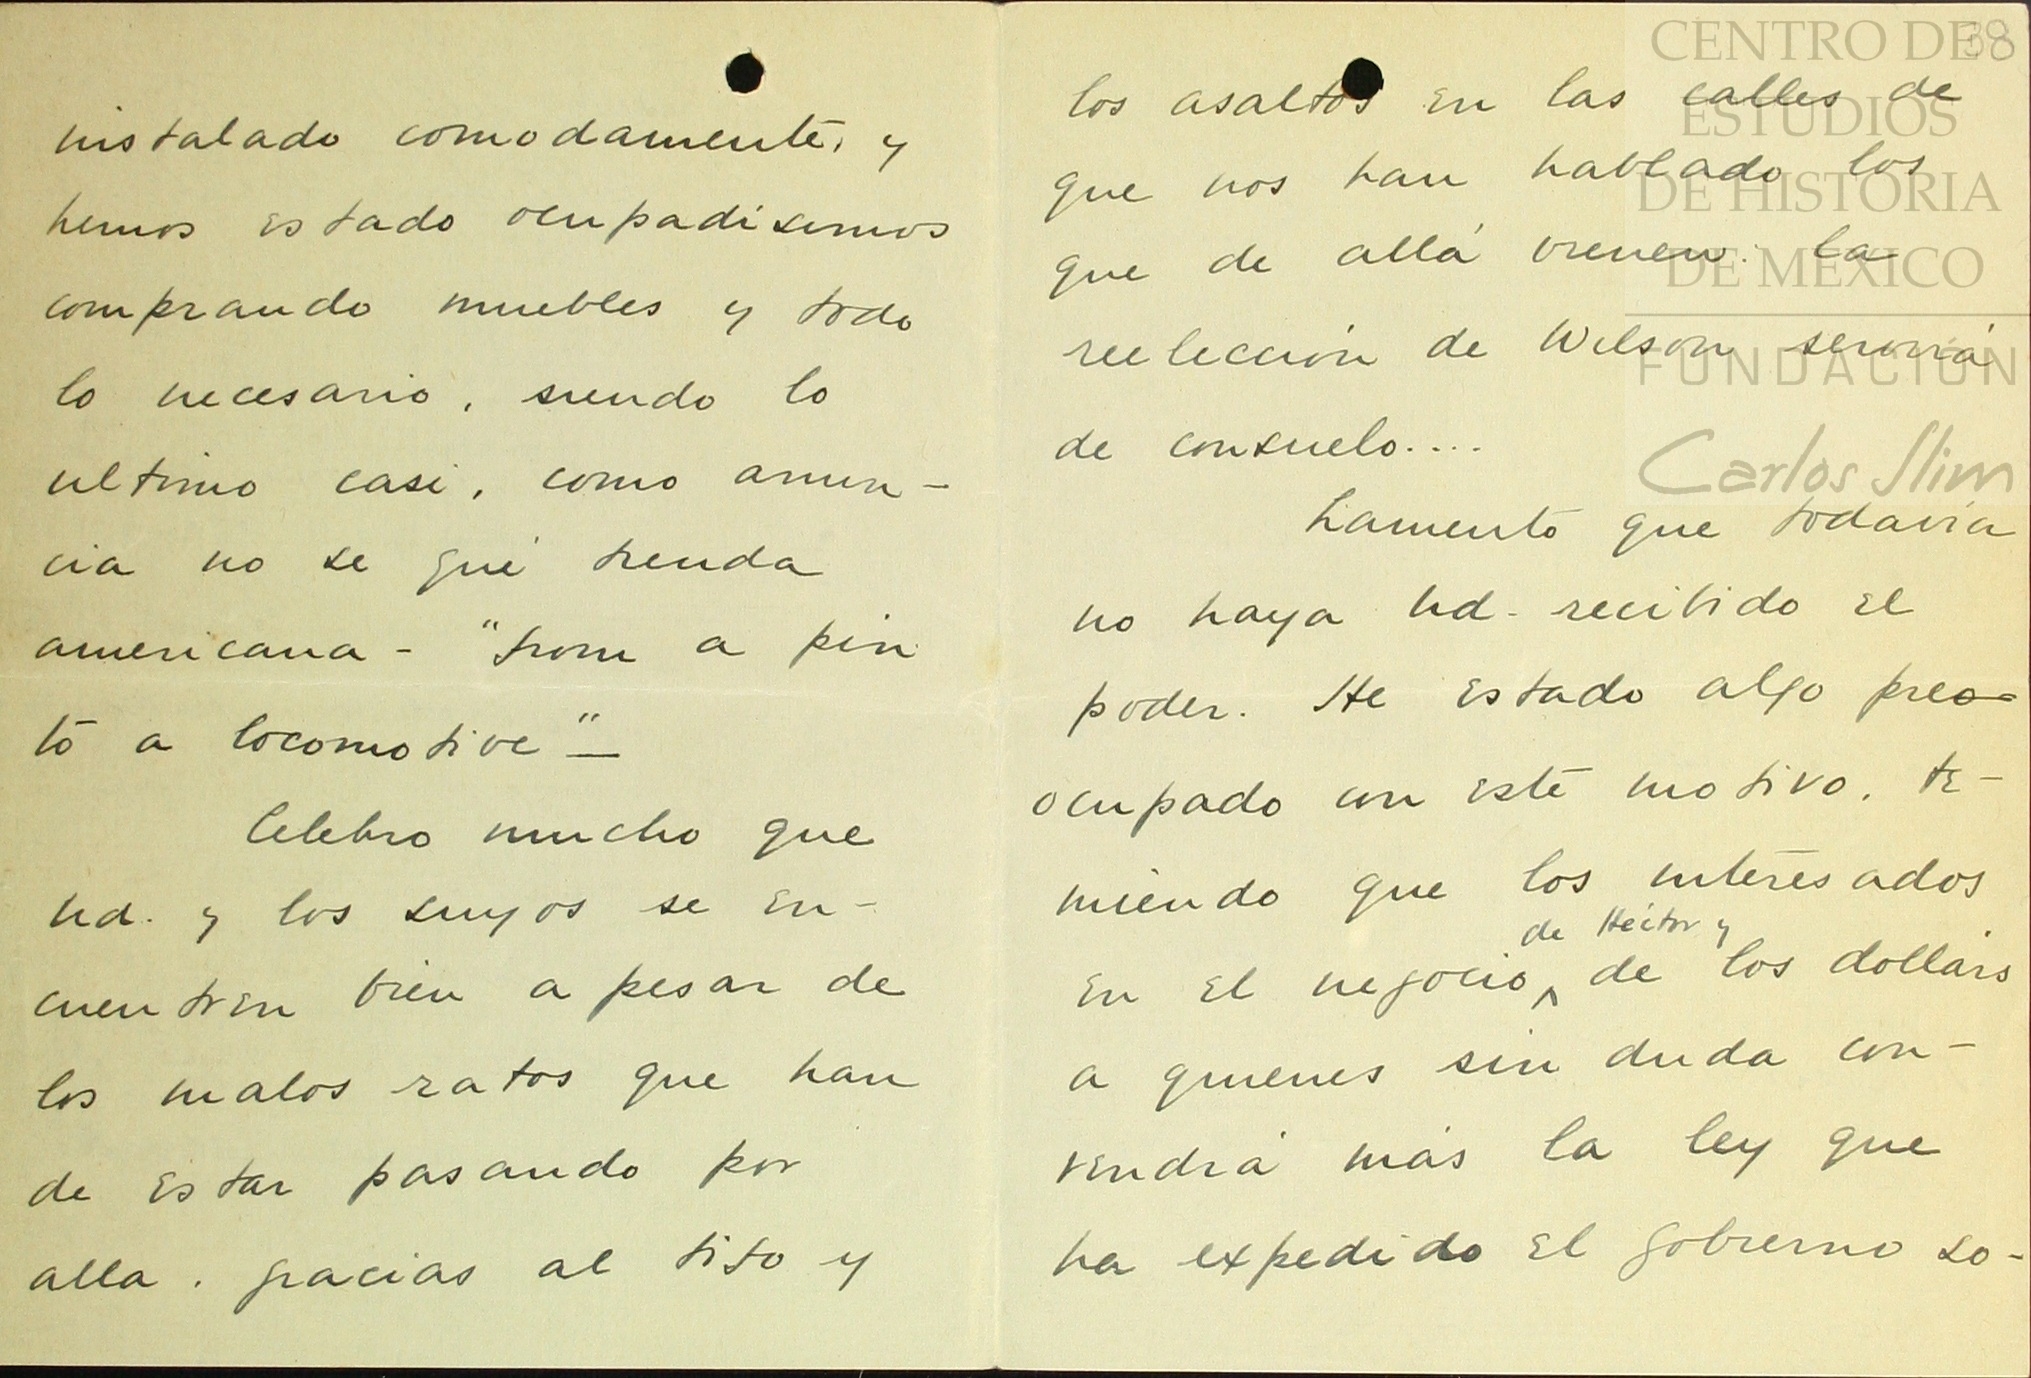 instalado comodamente, y
hemos estado ocupadisimos
comprando muebles y todo
lo necesario, siendo lo
ultimo casi, como anun-
cia no se qué tienda
americana - "from a pin
to a locomotive" —
Celebro mucho que
Ud. y los suyos se en-
cuentren bien a pesar de
los malos ratos que han
de estar pasando por
alla. gracias al tifo y
38
los asaltos en las calles de
que nos han hablado los
que de allá vienen. La
reelección de Wilson servirá
de consuelo....
Lamento que todavía
no haya Ud. recibido el
poder. He estado algo preo-
ocupado con este motivo, te-
miendo que los interesados
de Héctor y
en el negocio ^ de los dollars
a quienes sin duda con-
vendrá más la ley que
ha expedido el gobierno so-
CENTRO DE
ESTUDIOS
DE HISTORIA
DE MÉXICO
FUNDACIÓN
Carlos Slim